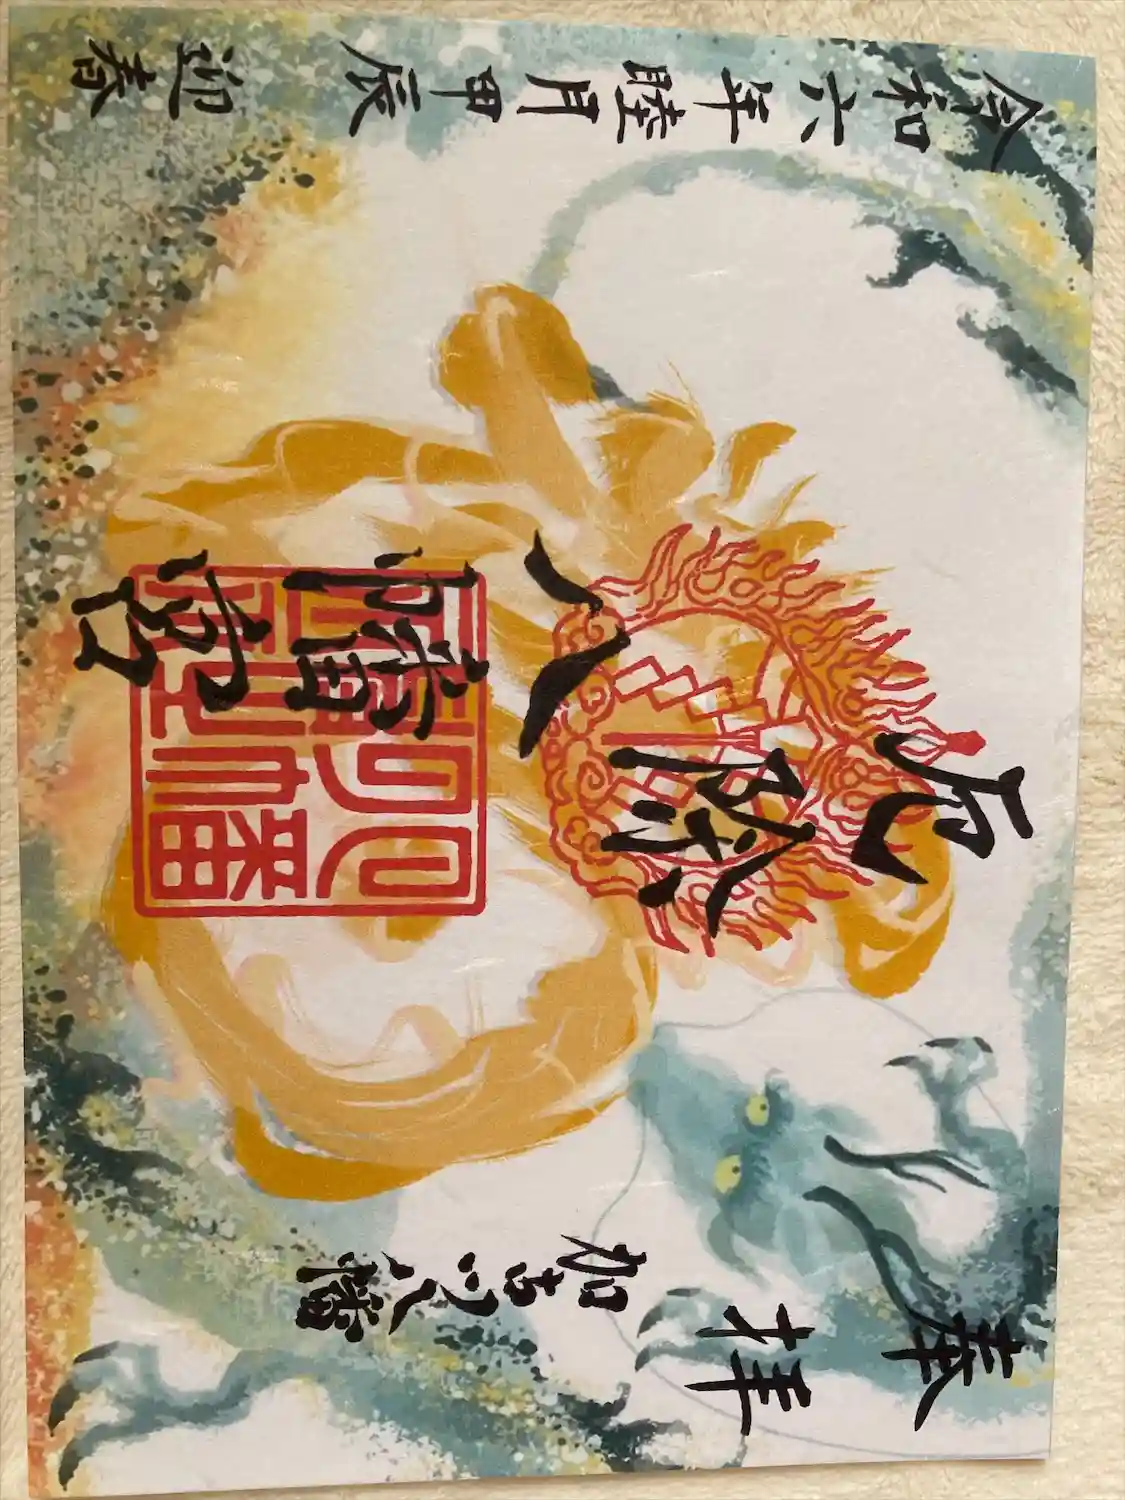 奉拝
加古川八幡
厄除
八幡宮
令和六年睦月甲辰迎春